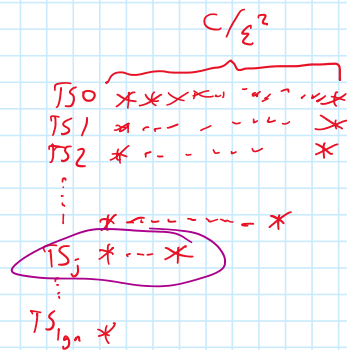 C/ε²
TS0 ****--------*
TS1 *--- - ---- *
TS2 *-- - --- *
⋮
*--------*
TSj *---*
⋮
TSlgn *